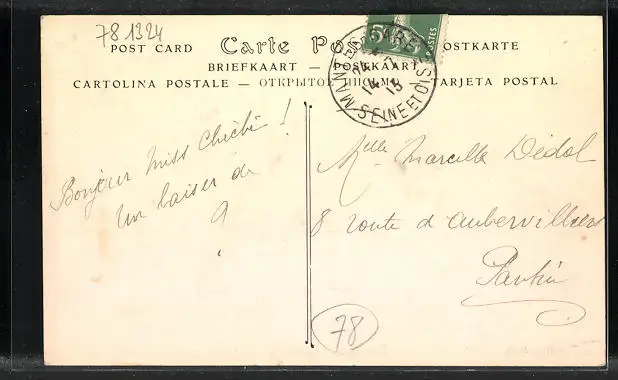 78 1324
POST CARD Carte Pos OSTKARTE
BRIEFKAART — POSTKAART
CARTOLINA POSTALE — ОТКРЫТОЕ ПИСЬМО TARJETA POSTAL
5 POSTES
MANTES GARE
14-7
13
SEINE ET OISE
Bonjour Miss Chichi !
Un baiser de
?
Mlle Marcelle Dédol
8 route d'Aubervilliers
Pantin
78